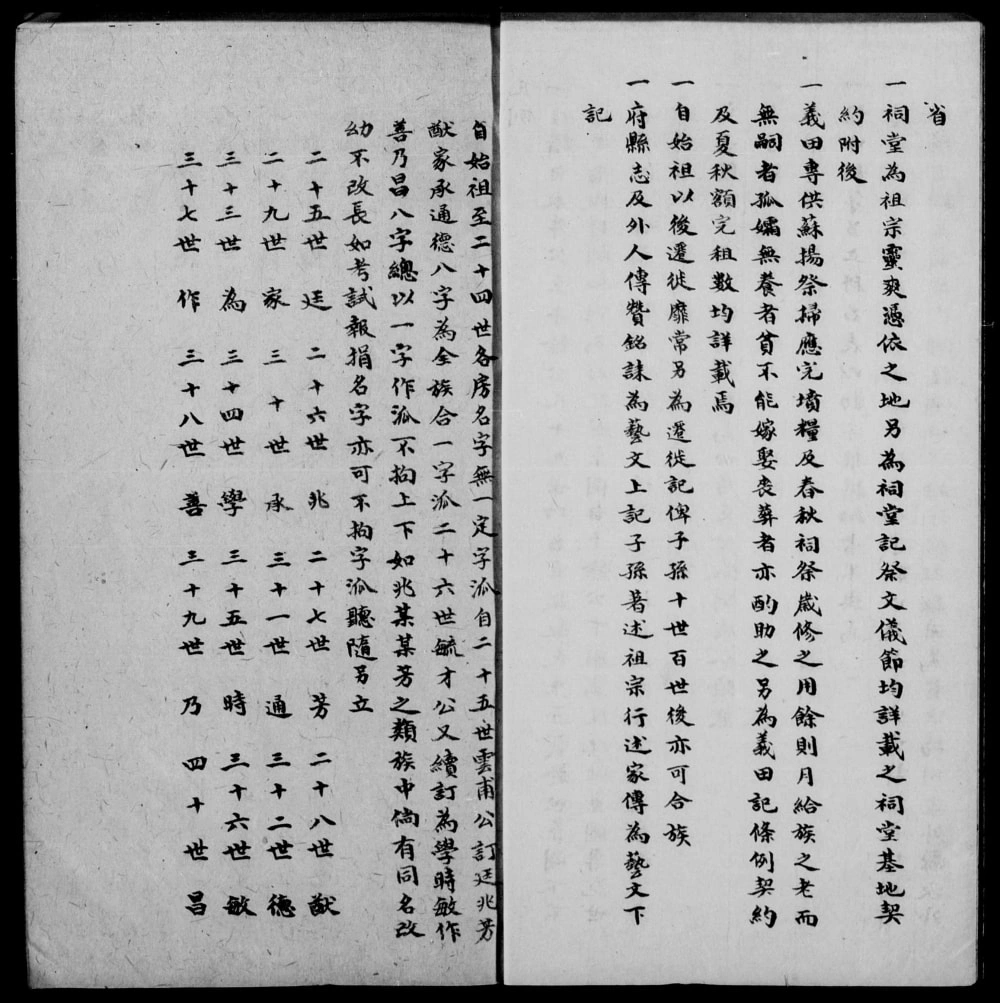 省
一祠堂為祖宗靈爽憑依之地另為祠堂記祭文儀節均詳載之祠堂基地契
約附後
一義田專供蘇揚祭掃應完墳糧及春秋祠祭歲修之用餘則月給族之老而
無嗣者孤孀無養者貧不能嫁娶喪葬者亦酌助之另為義田記條例契約
及夏秋額完租數均詳載焉
一自始祖以後遷徙靡常另為遷徙記俾子孫十世百世後亦可合族
一府縣志及外人傳贊銘誄為藝文上記子孫著述祖宗行述家傳為藝文下
記
自始祖至二十四世各房名字無一定字派自二十五世雲甫公訂廷兆芳
猷家承通德八字為全族合一字派二十六世毓才公又續訂為學時敏作
善乃昌八字總以一字作派不拘上下如兆某某芳之類族中倘有同名改
幼不改長如考試報捐名字亦可不拘字派聽隨另立
二十五世 廷 二十六世 兆 二十七世 芳 二十八世 猷
二十九世 家 三十世 承 三十一世 通 三十二世 德
三十三世 為 三十四世 學 三十五世 時 三十六世 敏
三十七世 作 三十八世 善 三十九世 乃 四十世 昌